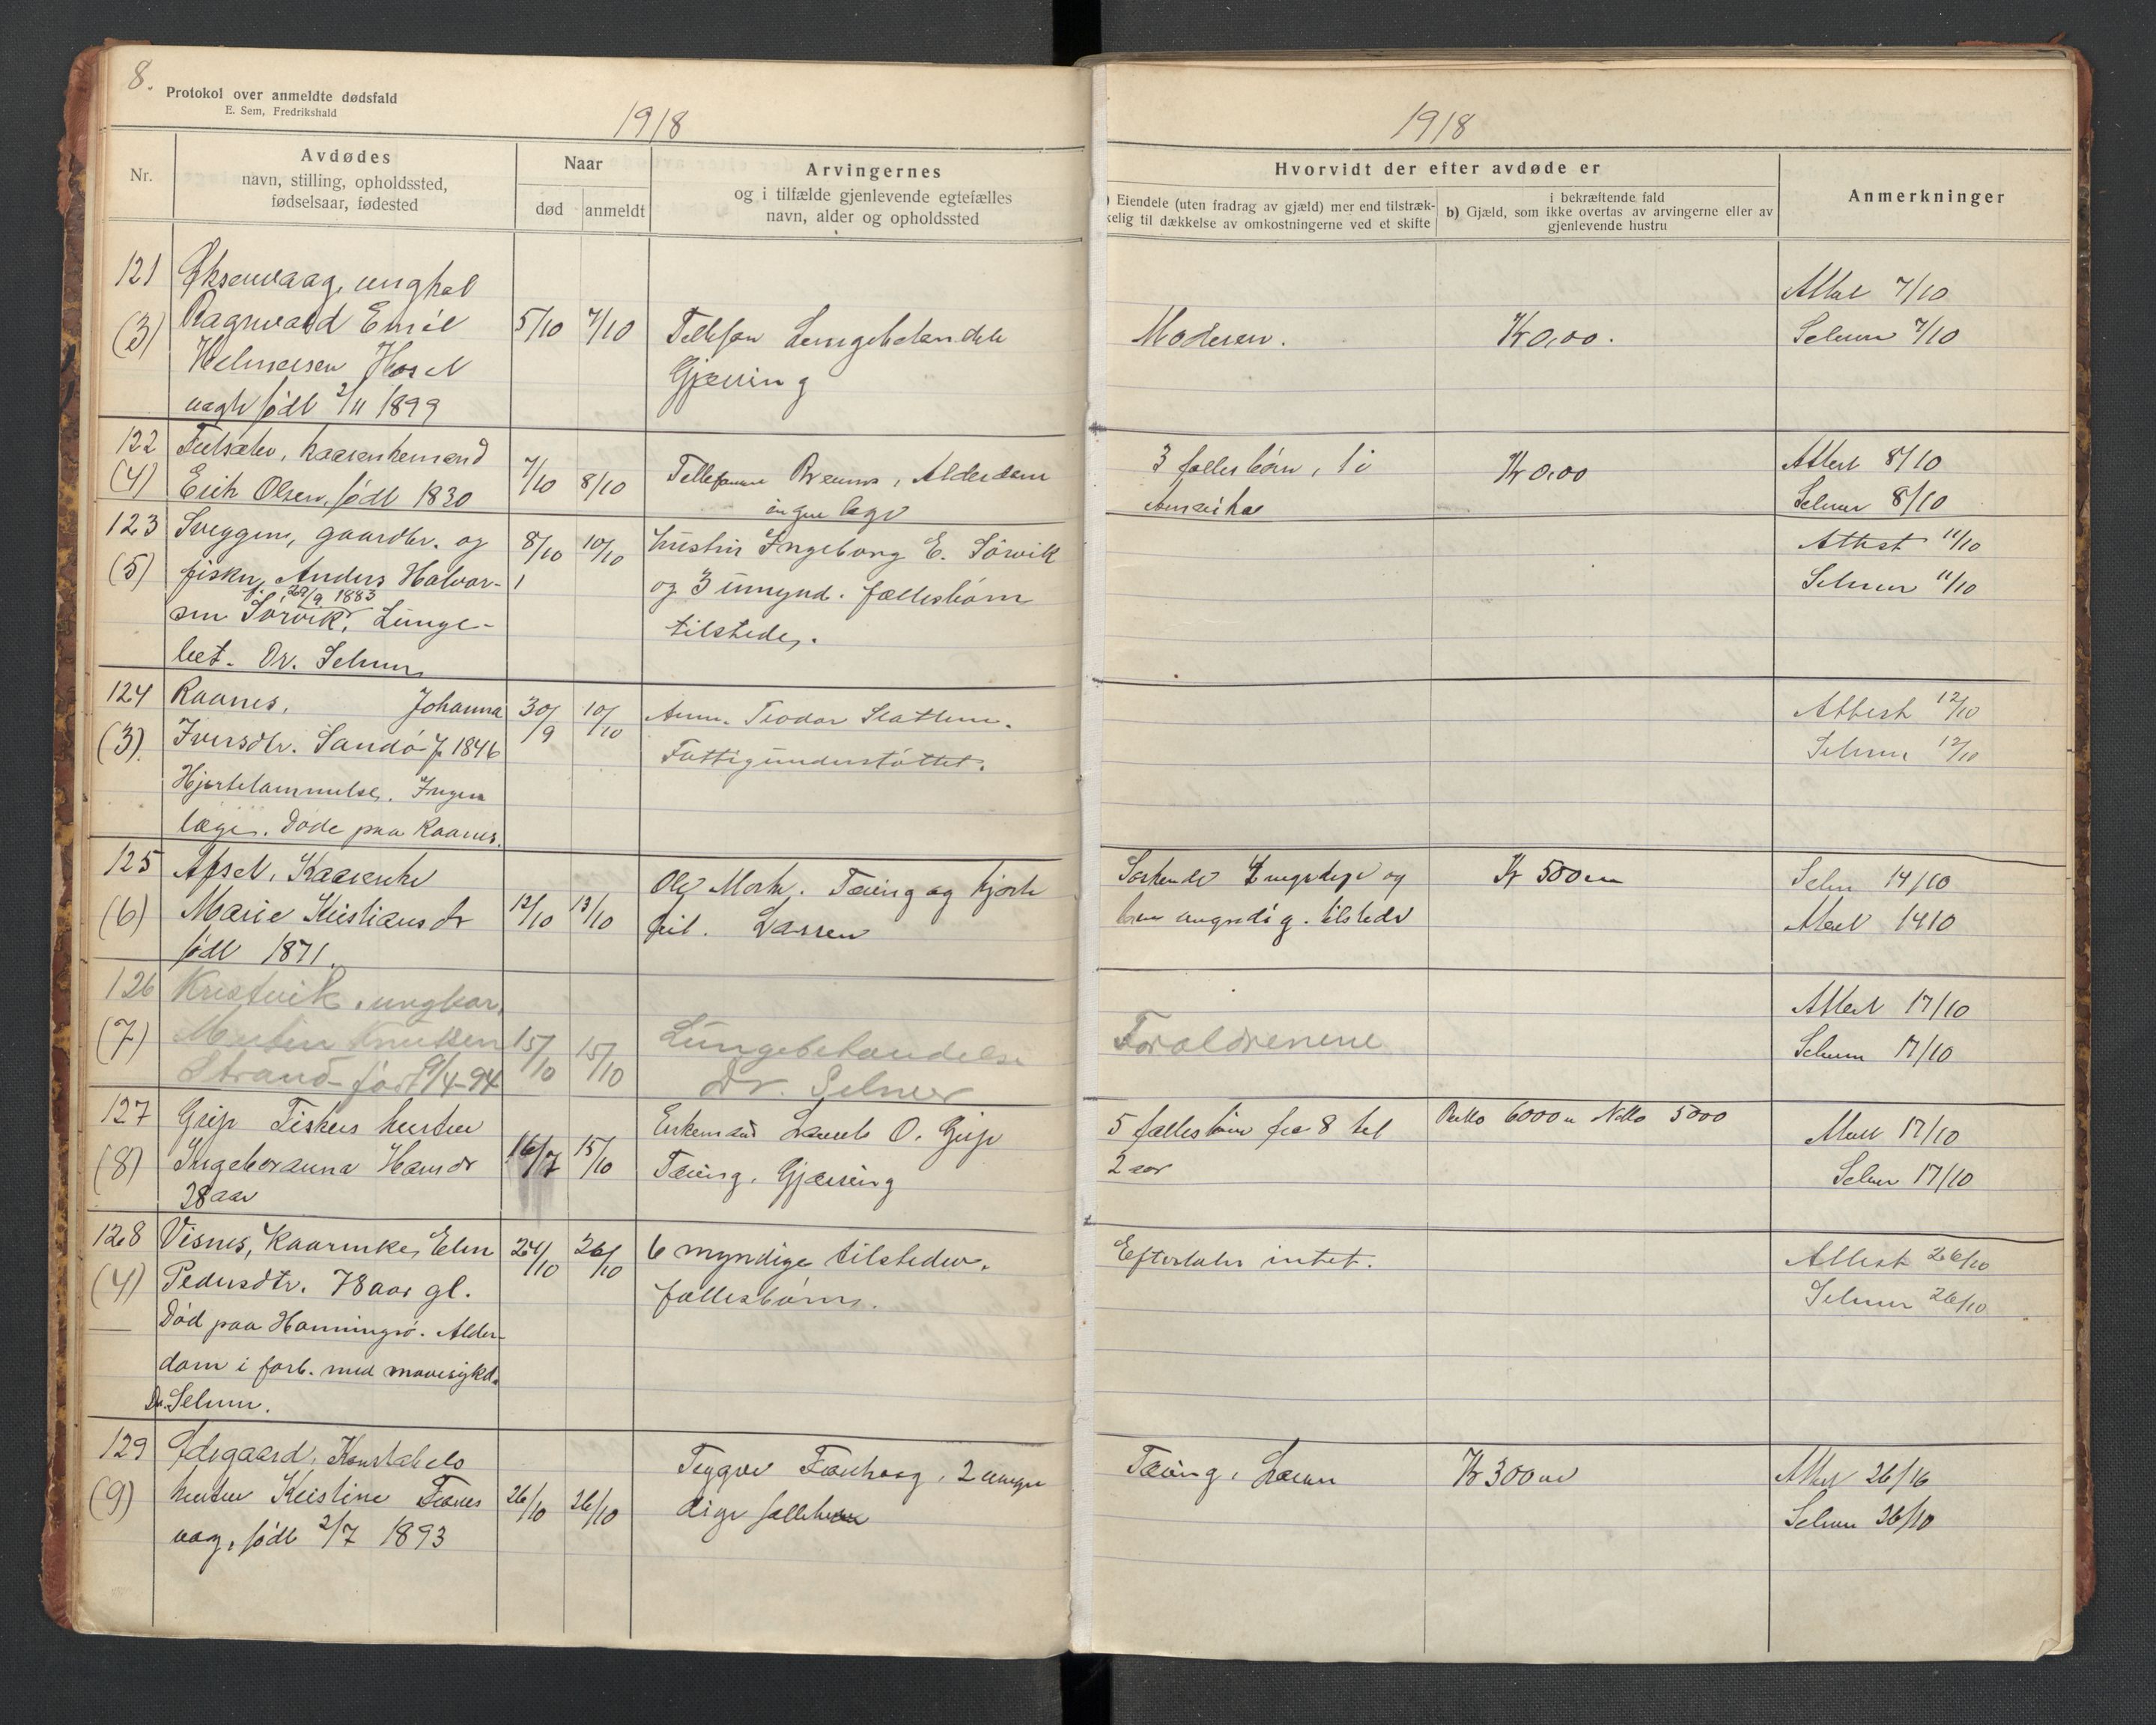 8.
Protokol over anmeldte dødsfald
E. Sem, Fredrikshald
1918
Nr.
Avdødes
navn, stilling, opholdssted,
fødselsaar, fødested
Naar
død
anmeldt
Arvingernes
og i tilfælde gjenlevende egtefælles
navn, alder og opholdssted
1918
Hvorvidt der efter avdøde er
Eiendele (uten fradrag av gjæld) mer end tilstræk-
kelig til dækkelse av omkostningerne ved et skifte
i bekræftende fald
b) Gjæld, som ikke overtas av arvingerne eller av
gjenlevende hustru
Anmerkninger
121
(3)
Øksenvaag, ungkal
Ragnvald Emil
født 2/11 1899
5/10 7/10
Telefon Lungebetændelse
Gjæring
Moderen.
Kr 0,00.
Attest 7/10
Selmer 7/10
122
(4)
kaarenkemand
Erik Olsen, født 1830
7/10 8/10
Alderdom
ingen læge
3 fællesbørn, 1 i
Amerika
Kr 0,00
Attest 8/10
Selmer 8/10
123
(5)
Sveggen, gaardbr. og
fisker, Anders Halvor-
f. 29/9 1883
sen Sørvik, Lunge-
bet. Dr. Selmer
8/10 10/10
hustru Ingeborg E. Sørvik
og 3 umynd. fællesbørn
tilstede.
Attest 11/10
Selmer 11/10
124
(3)
Raanes, Johanna
Iversdtr. Sandø f. 1846
Hjertelammelse. Ingen
læge. Døde paa Raanes.
30/9 10/10
Anm. Teodor
Fattigunderstøttet.
Attest 12/10
Selmer 12/10
125
(6)
Kaarenke
Marie Kristiansdr
født 1871.
12/10 13/10
Ole Mork. Tæring og hjerte
feil. Larsen
og
tilstede
Kr 500
Selm 14/10
Attest 1410
126
(7)
Kristvik, ungkar,
Knutsen
Strand født 9/4-94
15/10 15/10
Lungebetændelse
Dr. Selmer
Forældrenene
Attest 17/10
Selmer 17/10
127
(8)
Grip Fiskers hustru
Ingeboranna Hansdr
28 aar
16/7 15/10
Enkemand O. Grip
Tæring. Gjæring
5 fællesbørn fra 8 til
2 aar
Brutto 6000 Netto 5000
Attest 17/10
Selmer 17/10
128
(4)
Visnes, Kaarenke, Elen
Pedersdtr. 78 aar gl.
Død paa Honningsø. Alder-
dom i forb. med mavesykd.
Dr. Selmer.
24/10 26/10
6 myndige tilstedev.
fællesbørn.
Efterlater intet.
Attest 26/10
Selmer 26/10
129
(9)
Ødegaard, Konstabels
hustru Kristine
vag, født 2/7 1893
26/10 26/10
Trygve 2 umyn
dige fællesbørn
Tæring,
Kr 300
Attest 26/10
Selmer 26/10